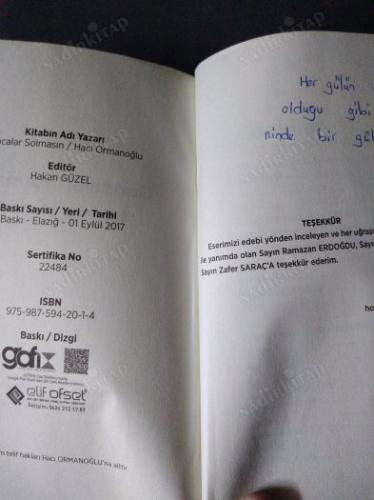 Kitabın Adı Yazarı
calar Solmasın / Hacı Ormanoğlu
Editör
Hakan GÜZEL
Baskı Sayısı / Yeri / Tarihi
Baskı - Elazığ - 01 Eylül 2017
Sertifika No
22484
ISBN
975-987-594-20-1-4
Baskı / Dizgi
gafix
elif ofset
İletişim: 0424 212 17 87
m telif hakları Hacı ORMANOĞLU'na aittir.
Her gülün
olduğu gibi
ninde bir gül
TEŞEKKÜR
Eserimizi edebi yönden inceleyen ve her uğraş
ile yanımda olan Sayın Ramazan ERDOĞDU, Say
Sayın Zafer SARAÇ'A teşekkür ederim.
ho
NADİR KİTAP